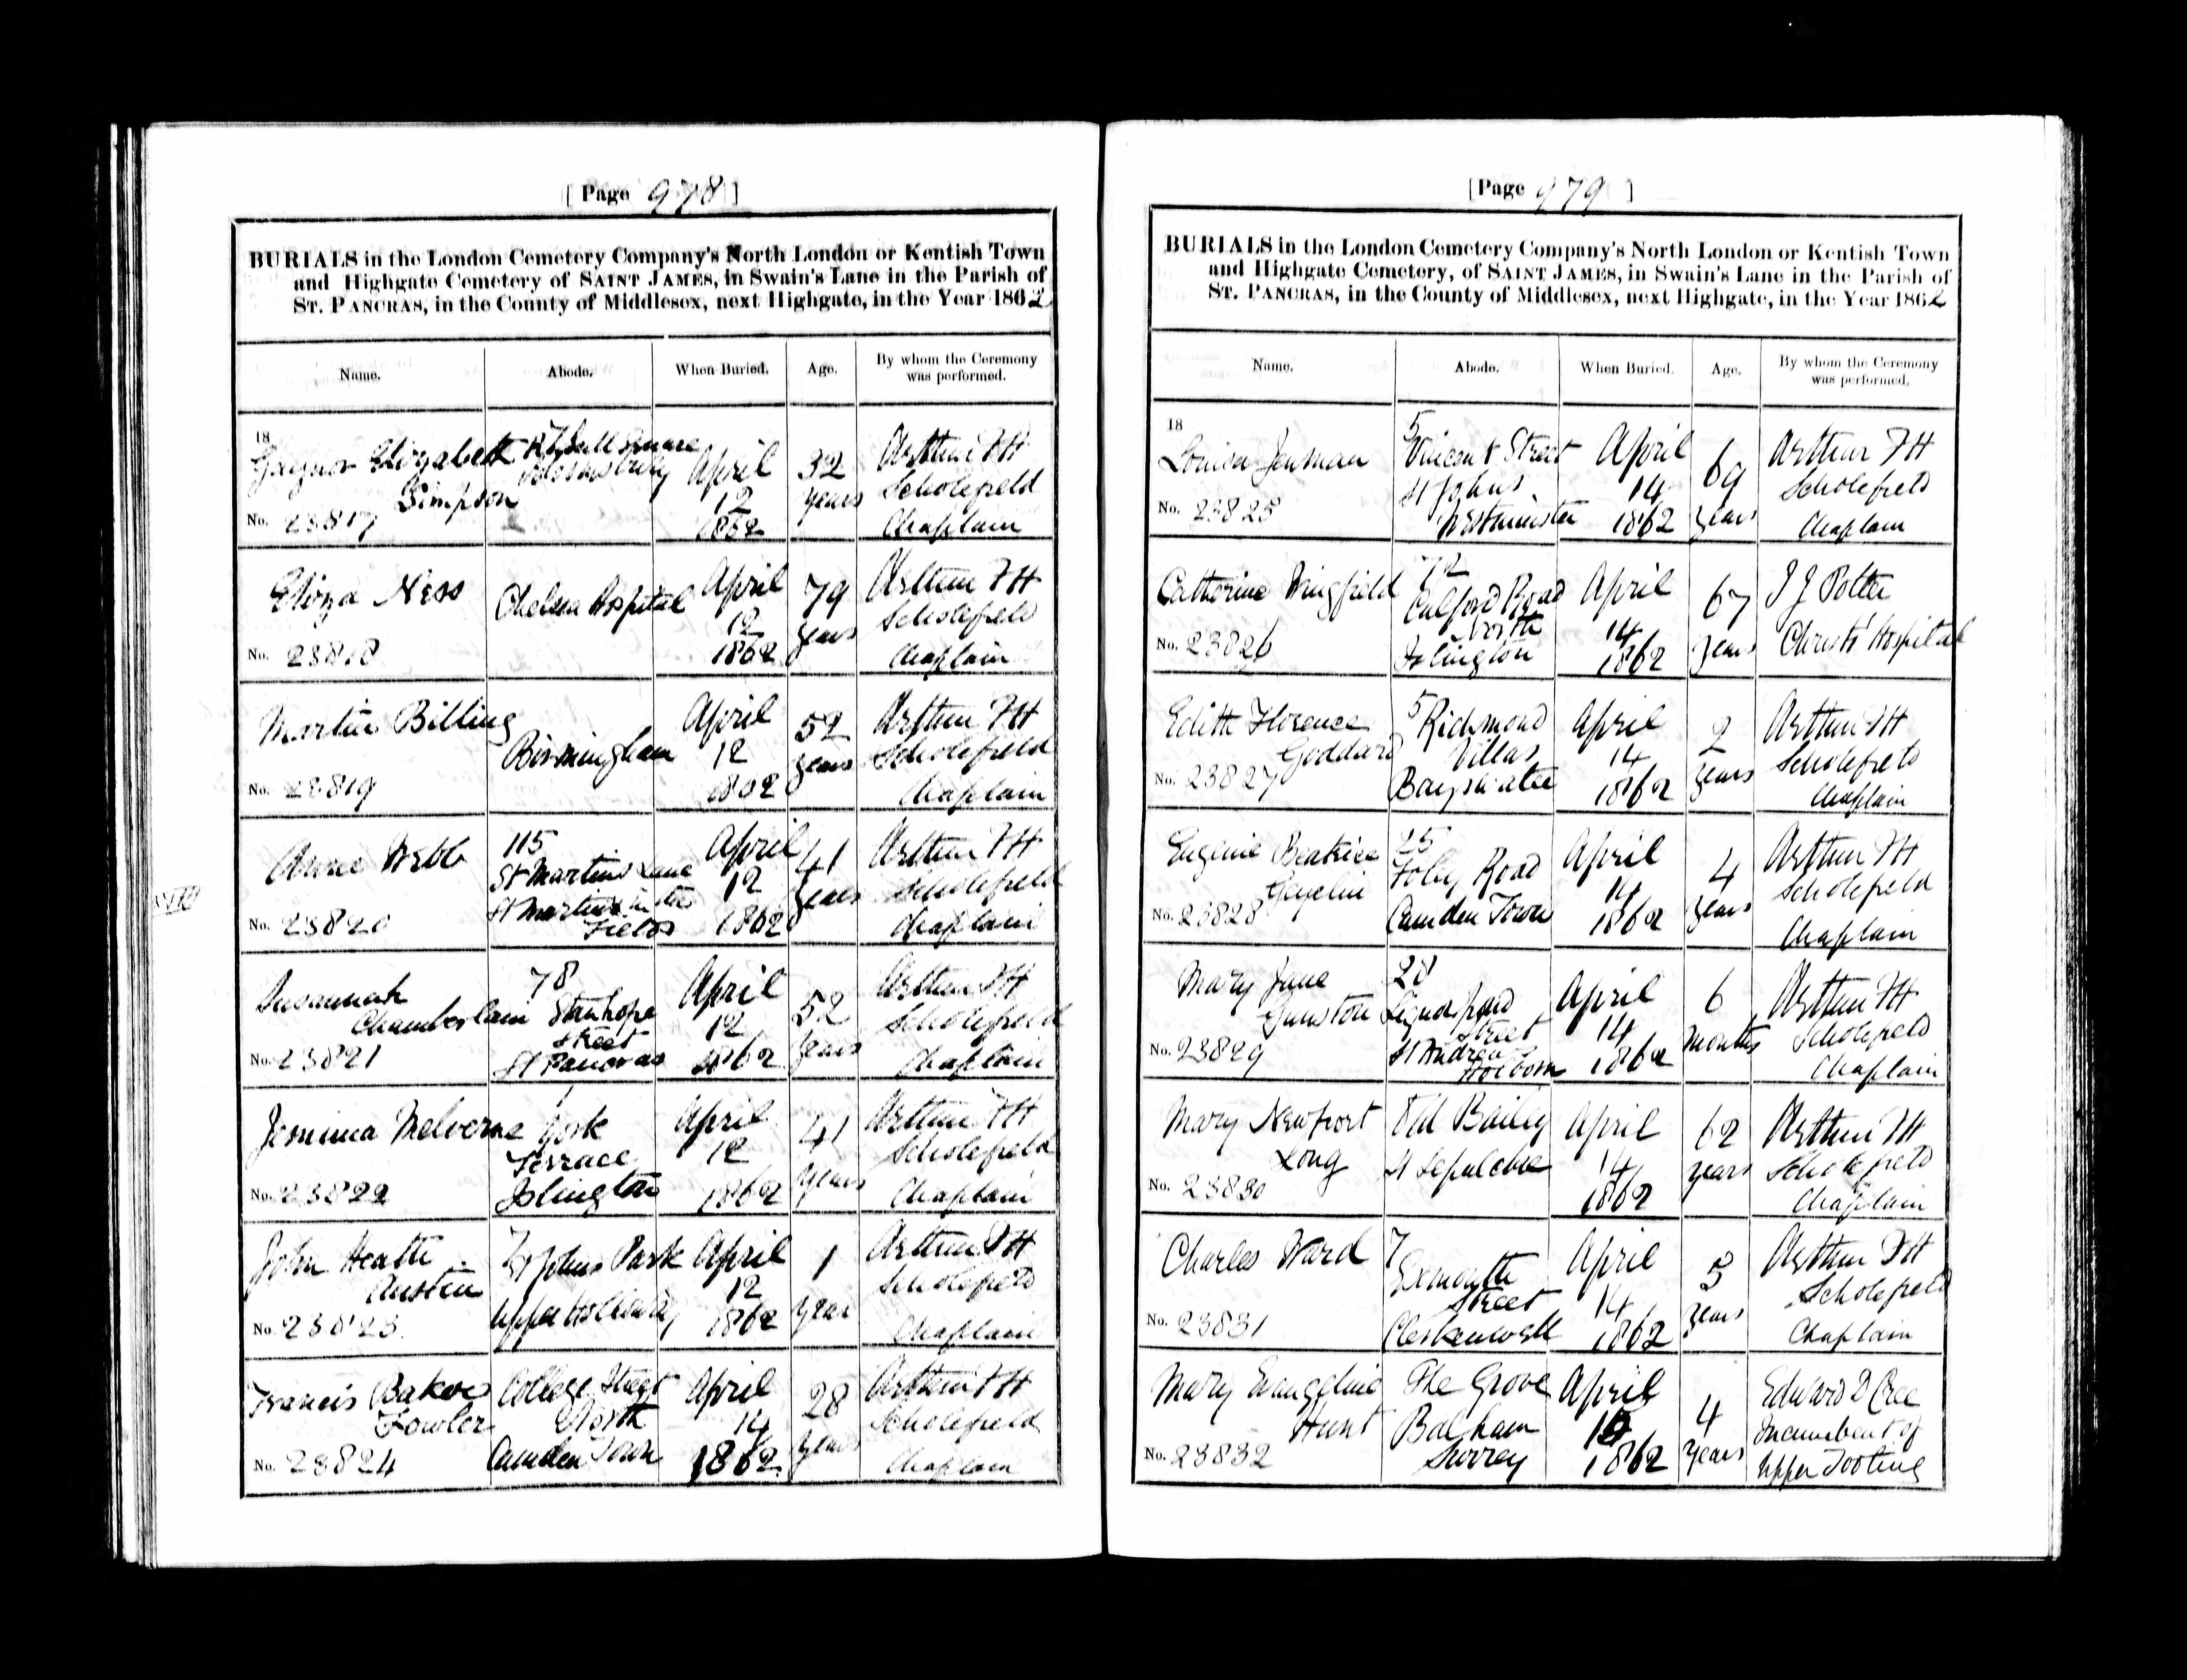 [ Page 978 ]
BURIALS in the London Cemetery Company's North London or Kentish Town
and Highgate Cemetery of SAINT JAMES, in Swain's Lane in the Parish of
ST. PANCRAS, in the County of Middlesex, next Highgate, in the Year 1862
Name. Abode. When Buried. Age. By whom the Ceremony was performed.
18
Gaynor Elizabeth
Simpson
No. 23817
Square
Bloomsbury
April
12
1862
32
years
Arthur FH
Scholefield
Chaplain
Eliza Ness
No. 23818
Chelsea Hospital
April
12
1862
79
years
Arthur FH
Scholefield
Chaplain
Martin Billing
No. 23819
Birmingham
April
12
1862
52
years
Arthur FH
Scholefield
Chaplain
Anne Webb
No. 23820
115
St Martins Lane
St Martins in the
Fields
April
12
1862
41
years
Arthur FH
Scholefield
Chaplain
Susannah
Chamberlain
No. 23821
78
Stanhope
Street
St Pancras
April
12
1862
52
years
Arthur FH
Scholefield
Chaplain
Jemima Melverne
No. 23822
1
York
Terrace
Islington
April
12
1862
41
years
Arthur FH
Scholefield
Chaplain
John Heath
Austin
No. 23823
7
St Johns Park
Upper Holloway
April
12
1862
1
year
Arthur FH
Scholefield
Chaplain
Francis Baker
Fowler
No. 23824
College Street
North
Camden Town
April
14
1862
28
years
Arthur FH
Scholefield
Chaplain
[ Page 979 ]
BURIALS in the London Cemetery Company's North London or Kentish Town
and Highgate Cemetery, of SAINT JAMES, in Swain's Lane in the Parish of
ST. PANCRAS, in the County of Middlesex, next Highgate, in the Year 1862
Name. Abode. When Buried. Age. By whom the Ceremony was performed.
18
Louisa Jenman
No. 23825
5
Vincent Street
St Johns
Westminster
April
14
1862
69
years
Arthur FH
Scholefield
Chaplain
Catherine Wingfield
No. 23826
72
Culford Road
North
Islington
April
14
1862
67
years
J J Potter
Christ's Hospital
Edith Florence
Goddard
No. 23827
5
Richmond
Villas
Bayswater
April
14
1862
2
years
Arthur FH
Scholefield
Chaplain
Eugenie Beatrice
Geyelin
No. 23828
25
Foley Road
Camden Town
April
14
1862
4
years
Arthur FH
Scholefield
Chaplain
Mary Jane
Gunston
No. 23829
28
Street
St Andrew
Holborn
April
14
1862
6
months
Arthur FH
Scholefield
Chaplain
Mary Newport
Long
No. 23830
Old Bailey
St Sepulchre
April
14
1862
62
years
Arthur FH
Scholefield
Chaplain
Charles Ward
No. 23831
7
Exmouth
Street
Clerkenwell
April
14
1862
3
years
Arthur FH
Scholefield
Chaplain
Mary Evangeline
Hunt
No. 23832
The Grove
Balham
Surrey
April
15
1862
4
years
Edward D Cree
Incumbent of
Upper Tooting